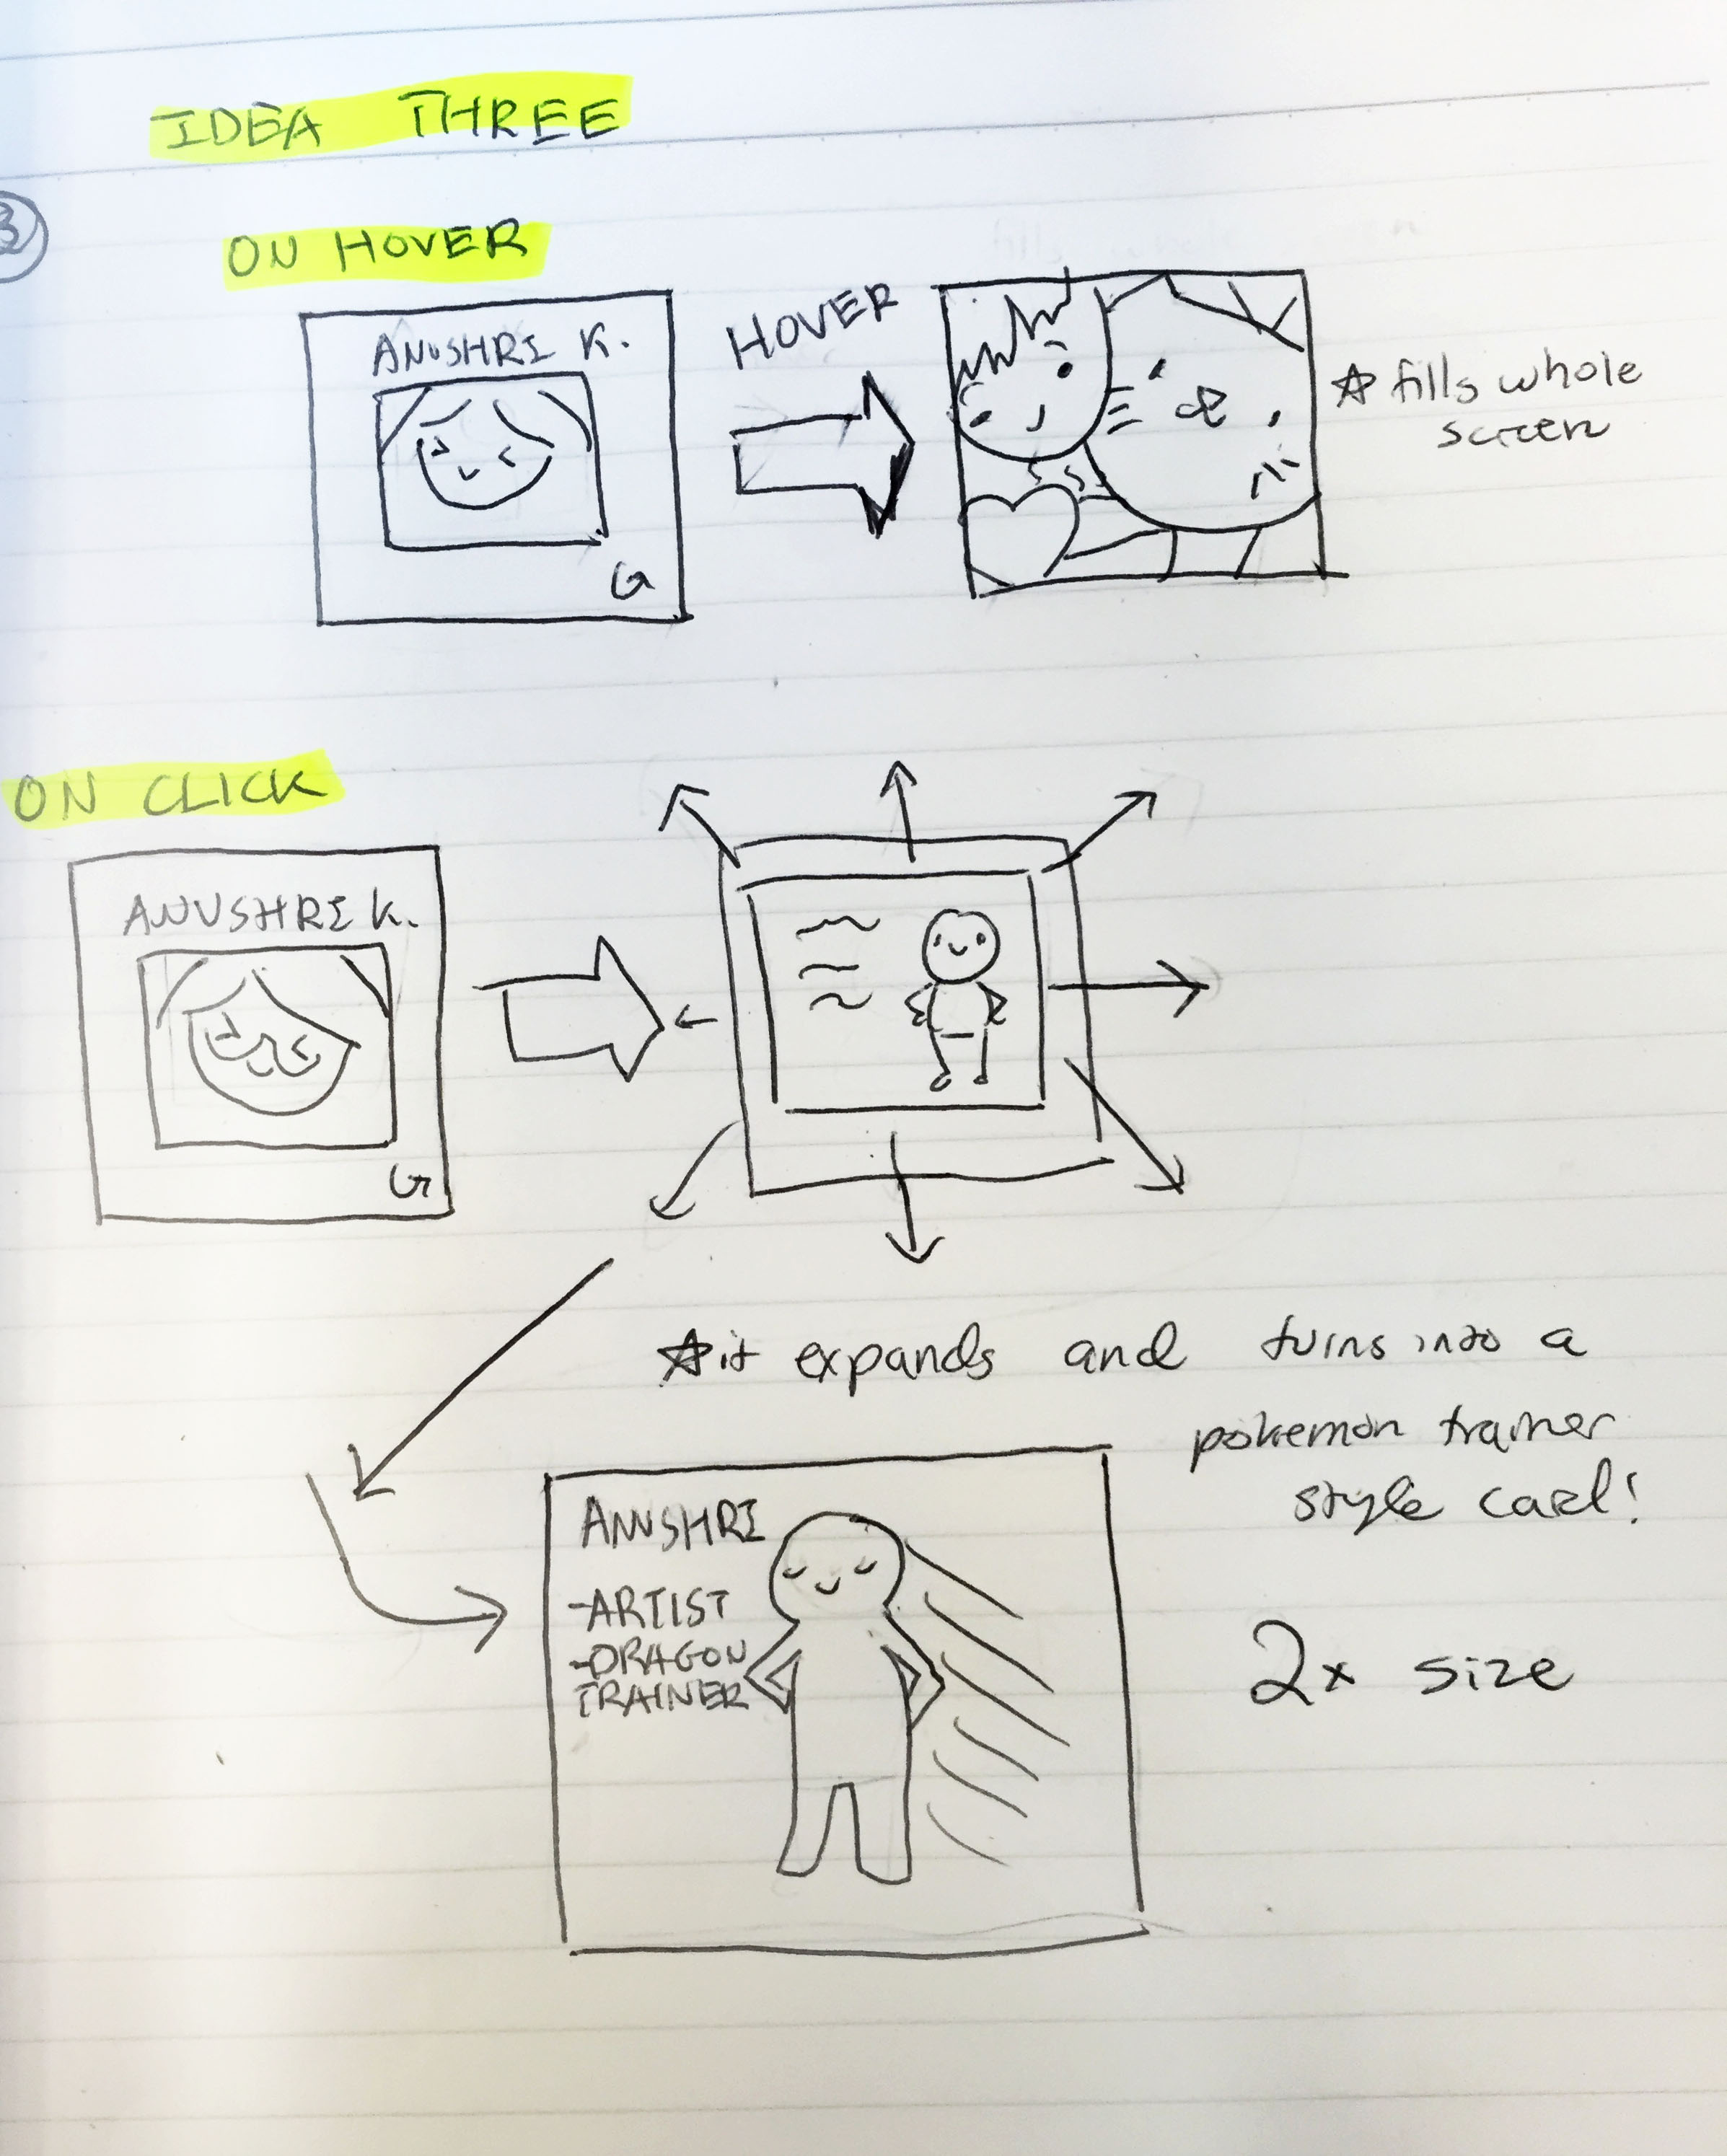 IDEA THREE
3
ON HOVER
ANUSHRI K.
HOVER
☆ fills whole
screen
G
ON CLICK
ANUSHRI K.
G
☆ it expands and turns into a
pokemon trainer
style card!
ANUSHRI
-ARTIST
-DRAGON
TRAINER
2x size